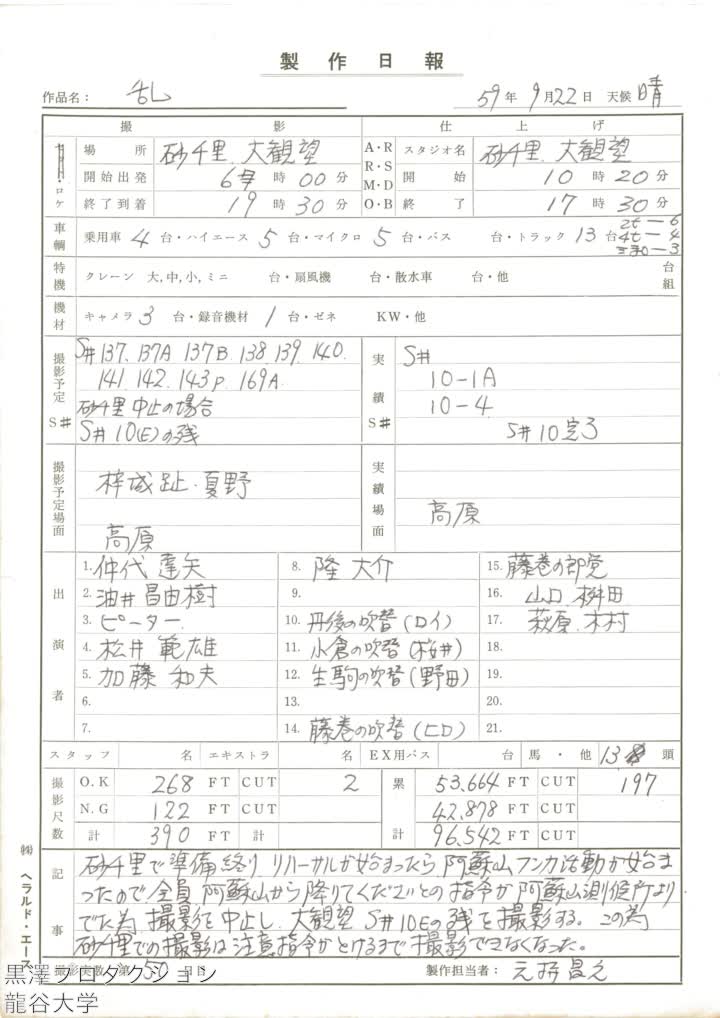 製作日報
作品名： 乱 59年 9月22日 天候 晴
撮影 仕上げ
セット・ロケ 場所 砂千里. 大観望 A・R R・S M・D O・B スタジオ名 砂千里. 大観望
開始出発 6時 00分 開始 10時 20分
終了到着 19時 30分 終了 17時 30分
車輌 乗用車 4 台・ハイエース 5 台・マイクロ 5 台・バス 台・トラック 13 台 2t－6 4t－4
特機 クレーン 大,中,小,ミニ 台・扇風機 台・散水車 台・他 台 組
機材 キャメラ 3 台・録音機材 1 台・ゼネ KW・他
撮影予定 S# S# 137. 137A 137B. 138. 139. 140.
141. 142. 143P. 169A.
砂千里中止の場合
S# 10(E)の残
実績 S# S#
10－1A
10－4
S# 10 完了
撮影予定場面 梓城趾・夏野
高原
実績場面 高原
出演者
1. 仲代達矢 8. 隆大介 15. 藤巻の郎党
2. 油井昌由樹 9. 16. 山口. 桝田
3. ピーター 10. 丹後の吹替(ロイ) 17. 萩原. 木村
4. 松井範雄 11. 小倉の吹替(桜井) 18.
5. 加藤和夫 12. 生駒の吹替(野田) 19.
6. 13. 20.
7. 14. 藤巻の吹替(ヒロ) 21.
スタッフ 名 エキストラ 名 EX用バス 台 馬・他 13 頭
撮影尺数 O.K 268 FT CUT 2 累計 53.664 FT CUT 197
N.G 122 FT CUT 42.878 FT CUT
計 390 FT 計 96.542 FT CUT
記事 砂千里で準備終り リハーサルが始まったら阿蘇山フンカ活動が始ま
ったので全員阿蘇山から降りてくださいとの指令が阿蘇山測候所より
でた為 撮影を中止し. 大観望 S# 10Eの残を撮影する。この為
砂千里での撮影は注意指令がとけるまで撮影できなくなった。
撮影実数 第50日目 製作担当者：
㈱ ヘラルド・エース
黒澤プロダクション
龍谷大学